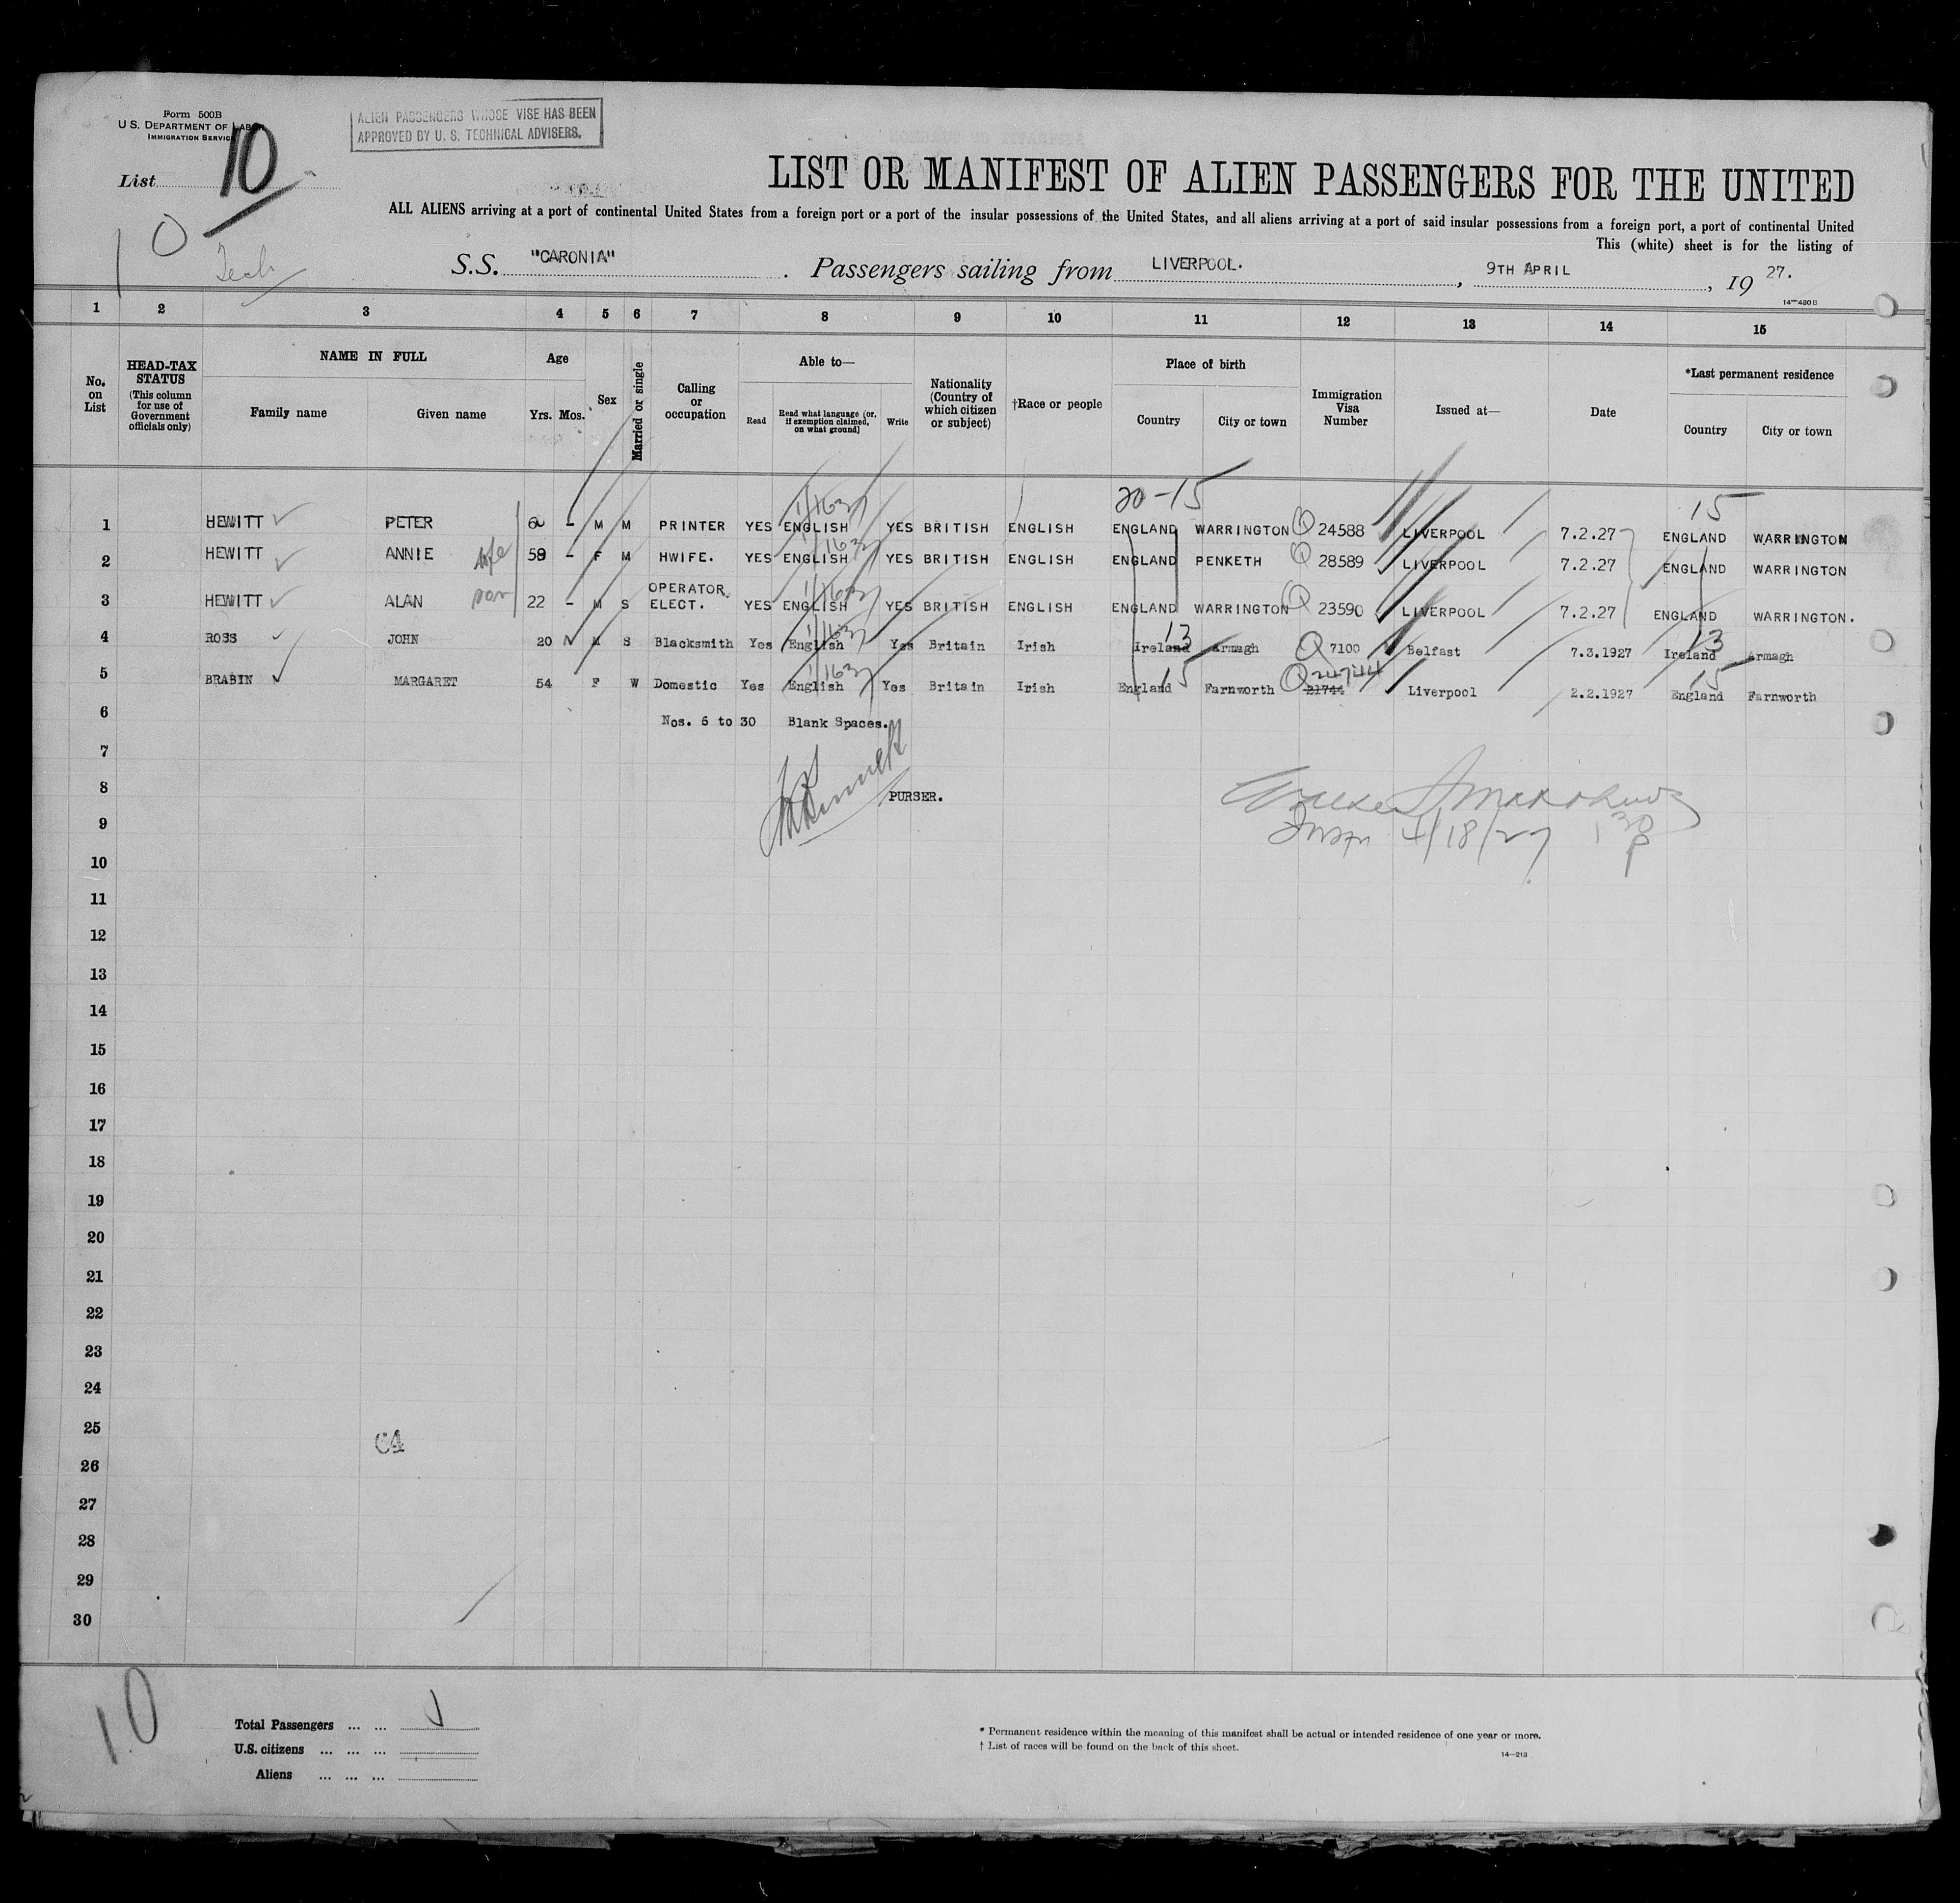 Form 500B
U.S. DEPARTMENT OF LABOR
IMMIGRATION SERVICE
ALIEN PASSENGERS WHOSE VISE HAS BEEN
APPROVED BY U. S. TECHNICAL ADVISERS.
List 10
LIST OR MANIFEST OF ALIEN PASSENGERS FOR THE UNITED
ALL ALIENS arriving at a port of continental United States from a foreign port or a port of the insular possessions of the United States, and all aliens arriving at a port of said insular possessions from a foreign port, a port of continental United
This (white) sheet is for the listing of
10
Tech
S.S. "CARONIA" . Passengers sailing from LIVERPOOL. , 9TH APRIL , 19 27.
14—480 B
1 2 3 4 5 6 7 8 9 10 11 12 13 14 15
No. on List
HEAD-TAX STATUS (This column for use of Government officials only)
NAME IN FULL
Family name Given name
Age
Yrs. Mos.
Sex
Married or single
Calling or occupation
Able to—
Read Read what language (or, if exemption claimed, on what ground) Write
Nationality (Country of which citizen or subject)
†Race or people
Place of birth
Country City or town
Immigration Visa Number
Issued at—
Date
*Last permanent residence
Country City or town
20-15 15
1 HEWITT PETER 60 - M M PRINTER YES ENGLISH YES BRITISH ENGLISH ENGLAND WARRINGTON Q 24588 LIVERPOOL 7.2.27 ENGLAND WARRINGTON
2 HEWITT ANNIE wife 59 - F M HWIFE. YES ENGLISH YES BRITISH ENGLISH ENGLAND PENKETH Q 28589 LIVERPOOL 7.2.27 ENGLAND WARRINGTON
3 HEWITT ALAN son 22 - M S OPERATOR. ELECT. YES ENGLISH YES BRITISH ENGLISH ENGLAND WARRINGTON Q 23590 LIVERPOOL 7.2.27 ENGLAND WARRINGTON.
4 ROSS JOHN 20 M S Blacksmith Yes English Yes Britain Irish Ireland 13 Armagh Q 7100 Belfast 7.3.1927 Ireland 13 Armagh
5 BRABIN MARGARET 54 F W Domestic Yes English Yes Britain Irish England 15 Farnworth Q 24744 21744 Liverpool 2.2.1927 England 15 Farnworth
6 Nos. 6 to 30 Blank Spaces.
7
8 PURSER.
9 Insp 4/18/27 1 30 P
10
11
12
13
14
15
16
17
18
19
20
21
22
23
24
25
C4
26
27
28
29
30
10
Total Passengers ... ...
U.S. citizens ... ... ...
Aliens ... ... ...
* Permanent residence within the meaning of this manifest shall be actual or intended residence of one year or more.
† List of races will be found on the back of this sheet.
14—213